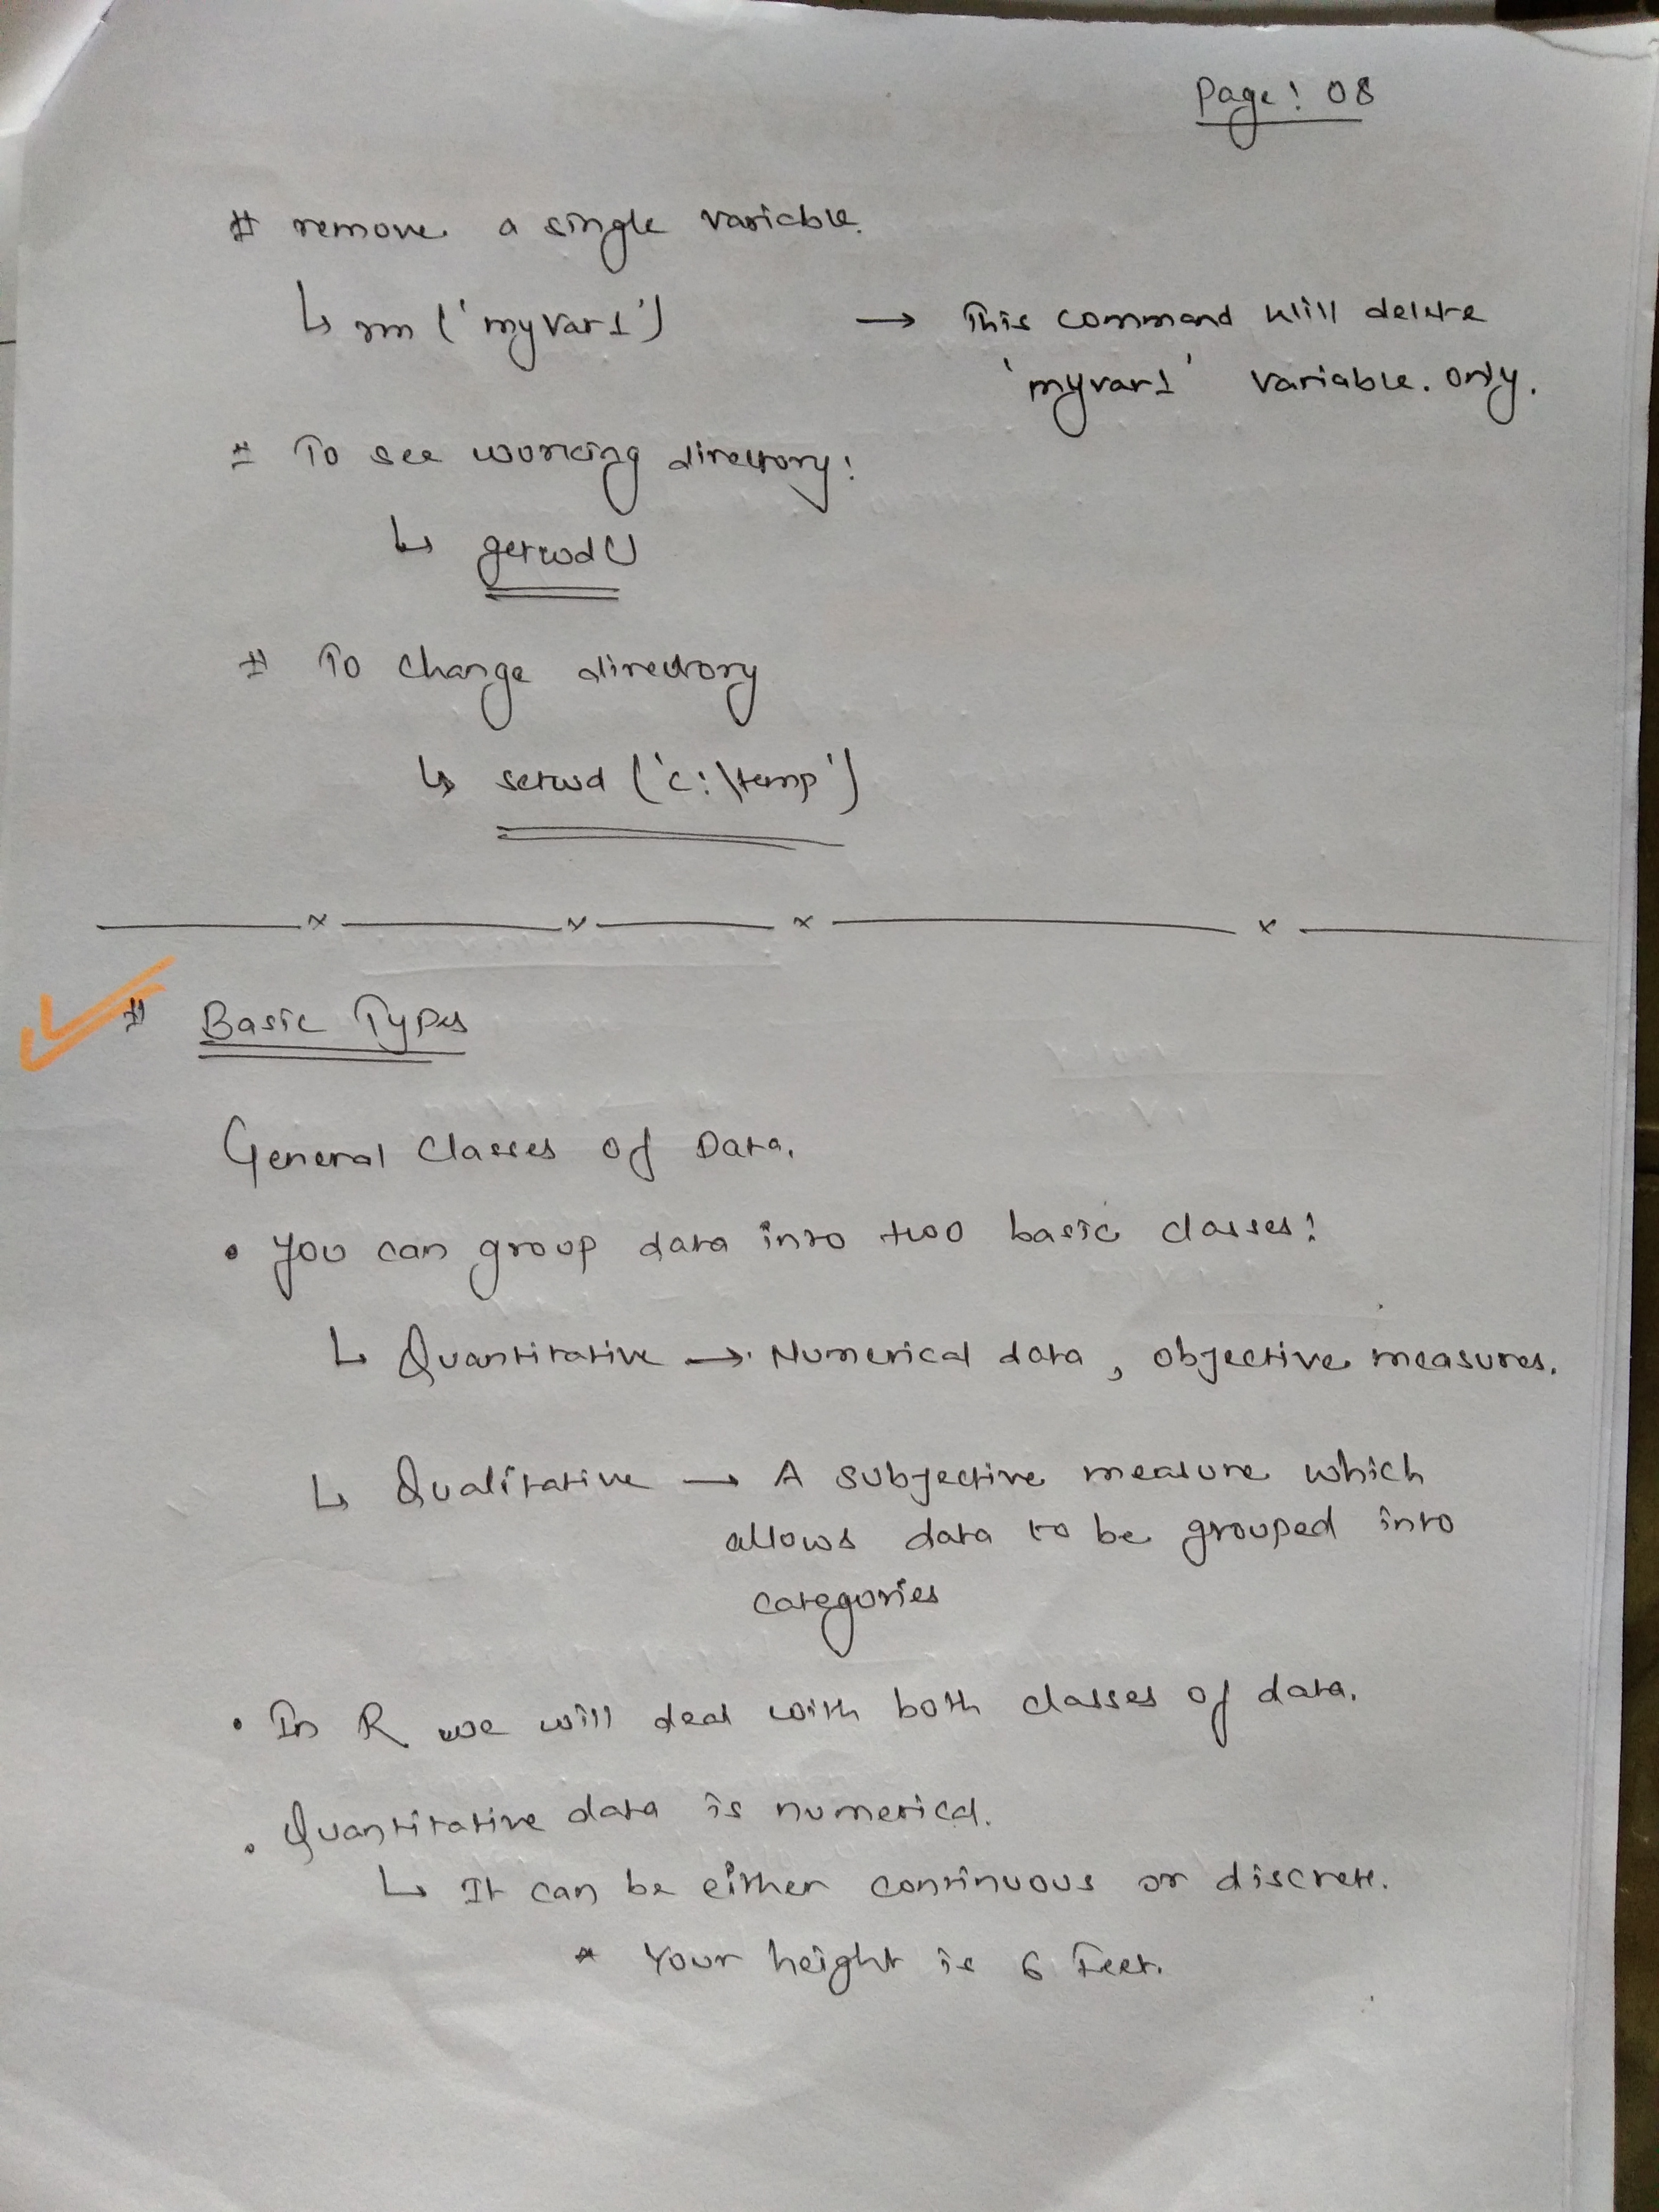 Page: 08
# remove a single variable.
↳ rm ('myvar1') → This command will delete
'myvar1' variable. only.
# To see working directory:
↳ getwd()
# To change directory
↳ setwd ('c:\temp')
x x x x
# Basic Types
General Classes of Data.
• You can group data into two basic classes:
↳ Quantitative → Numerical data, objective measures.
↳ Qualitative → A subjective measure which
allows data to be grouped into
categories
• In R we will deal with both classes of data.
• Quantitative data is numerical.
↳ It can be either continuous or discrete.
* Your height is 6 Feet.